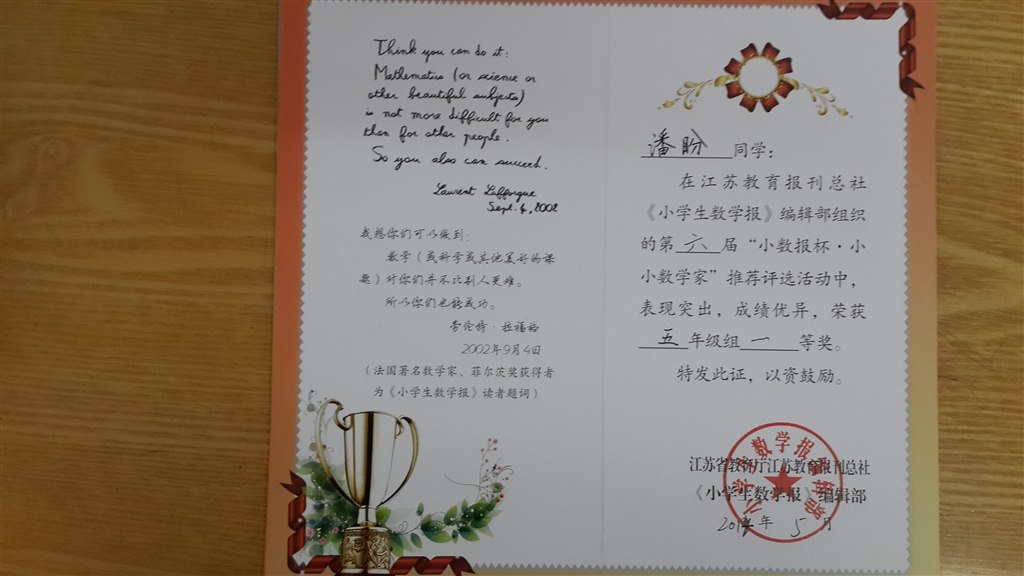 Think you can do it:
Mathematics (or science or
other beautiful subjects)
is not more difficult for you
than for other people.
So you also can succeed.
Laurent Lafforgue
Sept. 4, 2002
我想你们可以做到:
数学(或科学或其他美好的课
题)对你们并不比别人更难。
所以你们也能成功。
劳伦特·拉福格
2002年9月4日
(法国著名数学家、菲尔茨奖获得者
为《小学生数学报》读者题词)
潘盼同学:
在江苏教育报刊总社
《小学生数学报》编辑部组织
的第六届“小数报杯·小
小数学家”推荐评选活动中,
表现突出,成绩优异,荣获
五年级组一等奖。
特发此证,以资鼓励。
江苏省教育厅江苏教育报刊总社
《小学生数学报》编辑部
2014年5月
小学生数学报编辑部